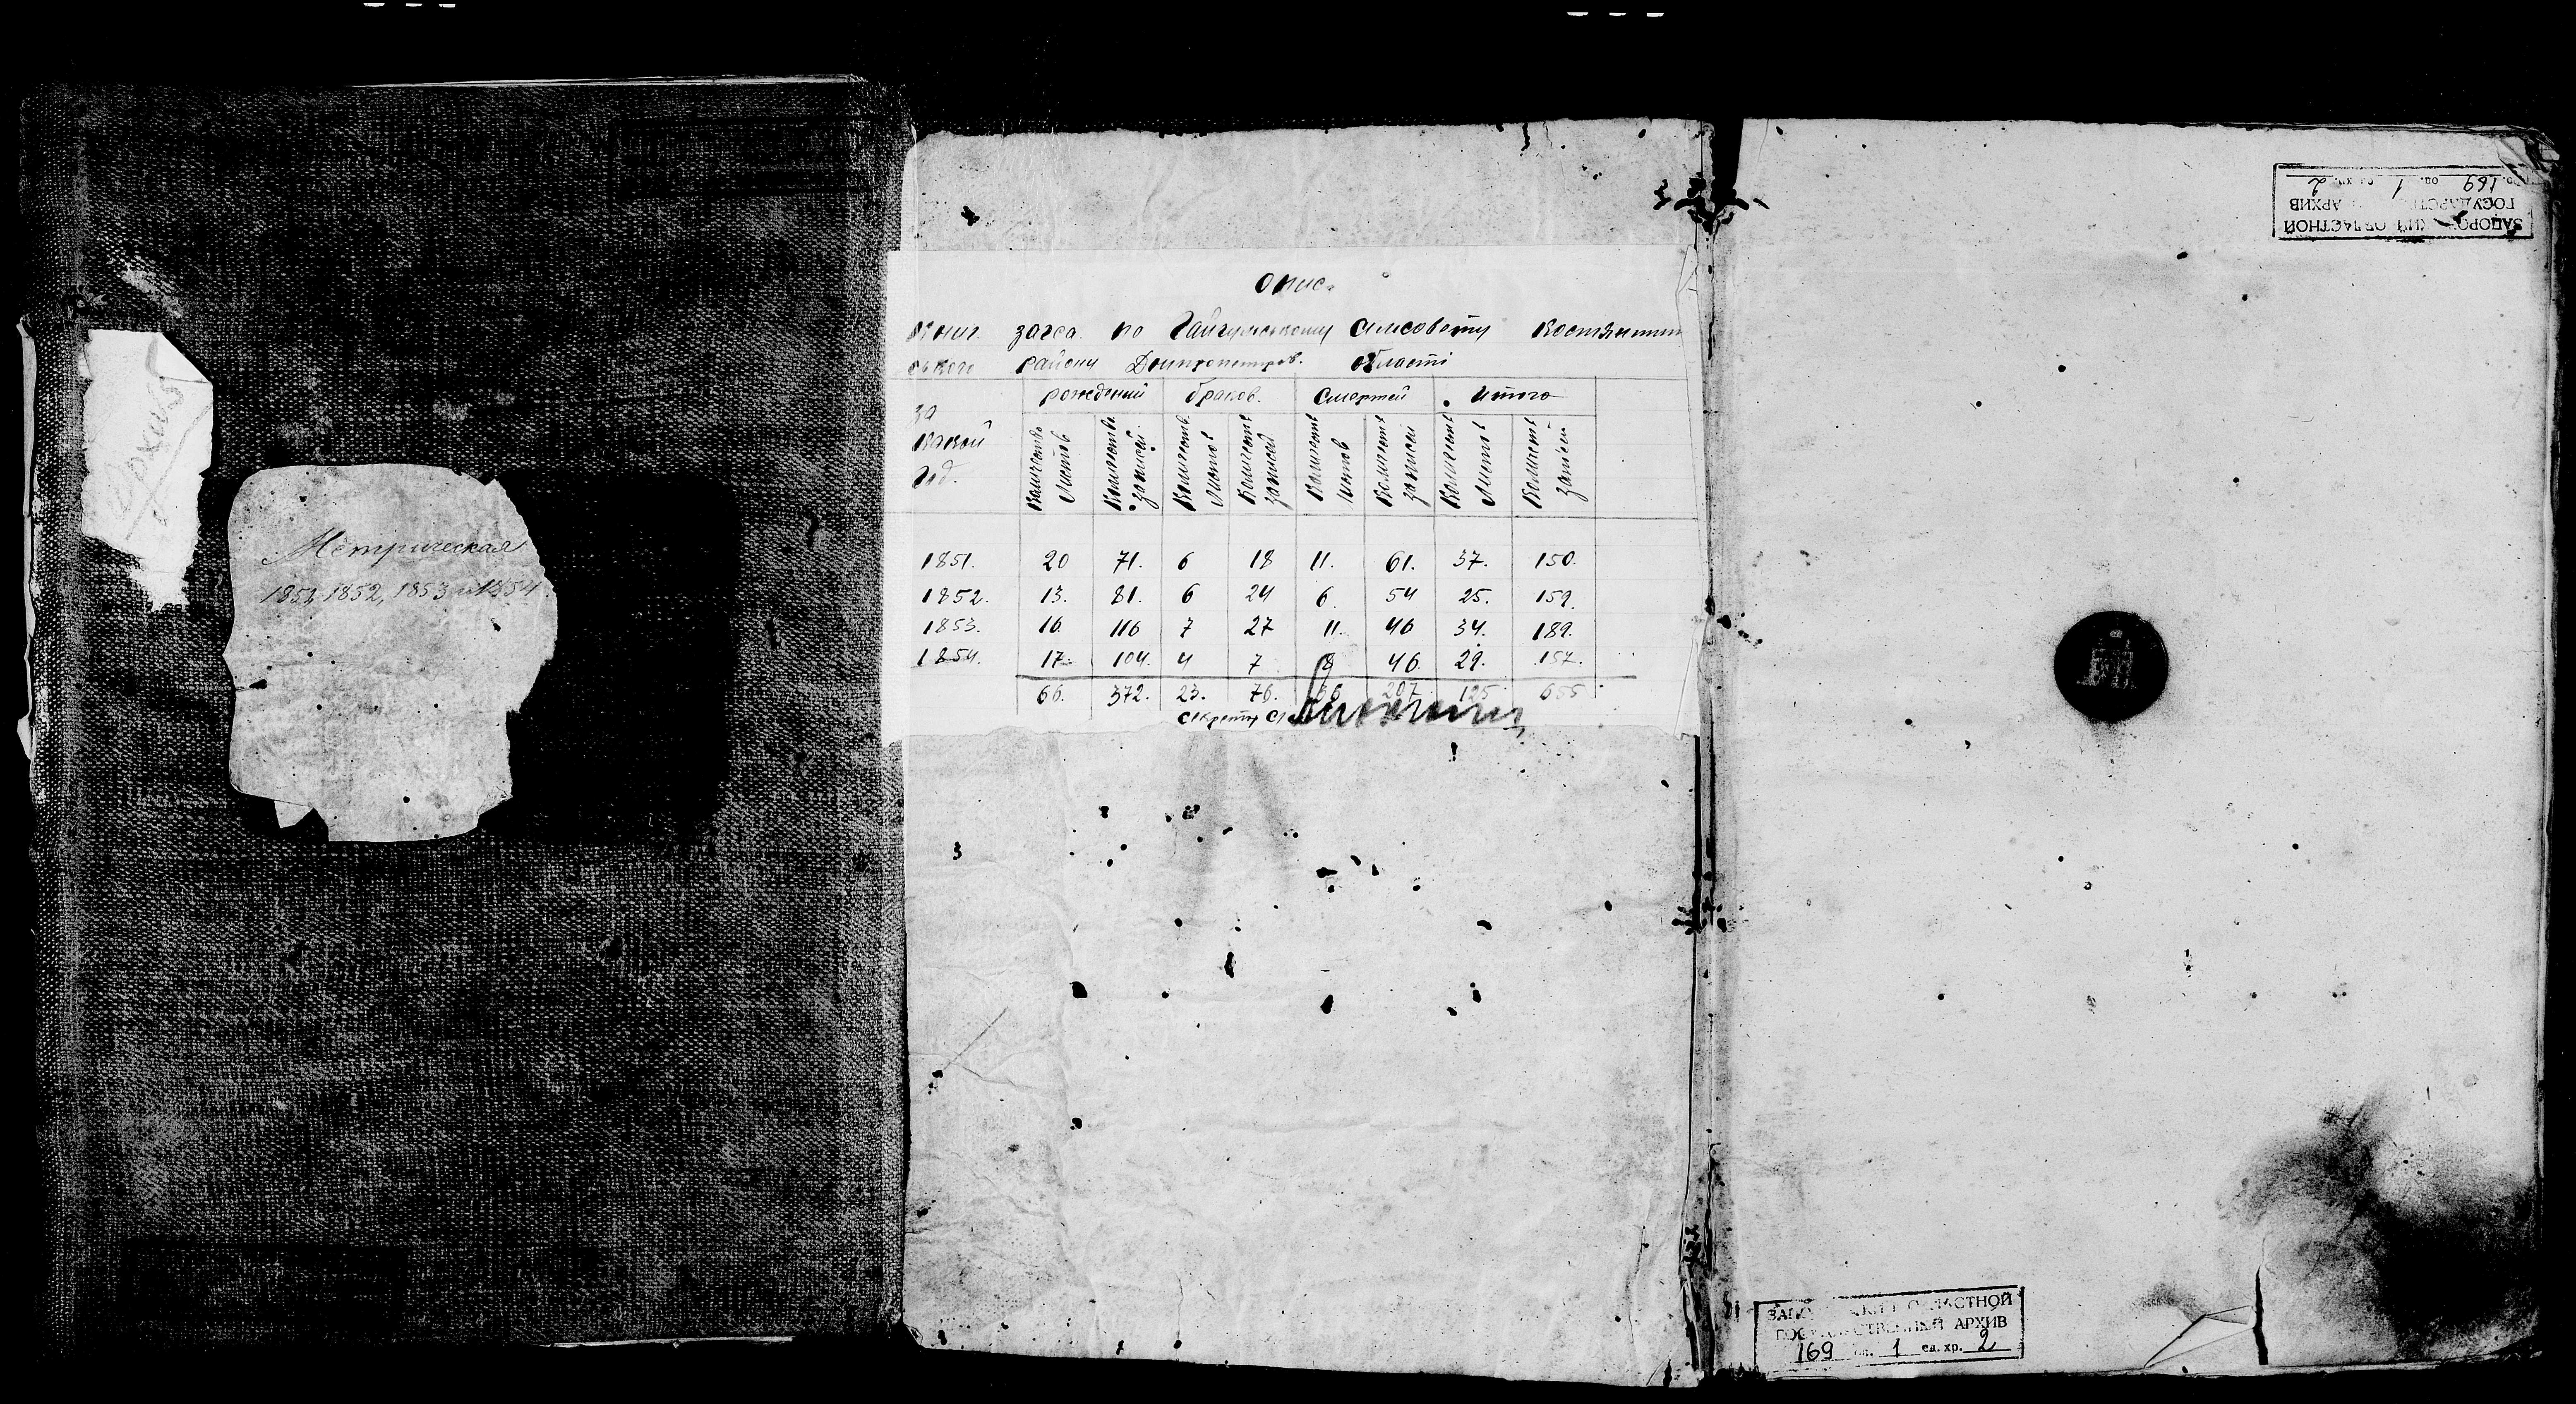 Архив
Метрическая
1851, 1852, 1853 и 1854
Опис.
Книг. загса. по Гайчульскому сільсовету
ского района Днипропетров. області
за какой год.
рождений браков. смертей итого
количество листов количество записей количество листов количество записей количество листов количество записей количество листов количество записей
1851. 20 71. 6 18 11. 61. 37. 150.
1852. 13. 81. 6 24 6. 54 25. 159.
1853. 16. 116 7 27 11. 46 34. 189.
1854. 17. 104. 4 7 8 46. 29. 157.
66. 372. 23. 76. 36 207. 125. 655.
секрет
ОБЛАСТНОЙ
АРХИВ
169 оп. 1 ед. хр. 2
ОБЛАСТНОЙ
ГОСУДАРСТВЕННЫЙ АРХИВ
169 оп. 1 ед. хр. 2